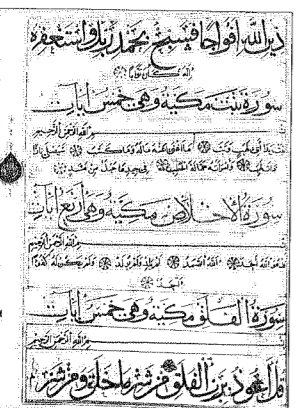 دين الله افواجا فسبح بحمد ربك واستغفره
انه كان توابا
سورة تبت مكية وهي خمس ايات
بسم الله الرحمن الرحيم
تبت يدا ابي لهب وتب ما اغنى عنه ماله وما كسب سيصلى نارا
ذات لهب وامراته حمالة الحطب في جيدها حبل من مسد
سورة الاخلاص مكية وهي اربع ايات
بسم الله الرحمن الرحيم
قل هو الله احد الله الصمد لم يلد ولم يولد ولم يكن له كفوا
احد
سورة الفلق مكية وهي خمس ايات
بسم الله الرحمن الرحيم
قل اعوذ برب الفلق من شر ما خلق ومن شر